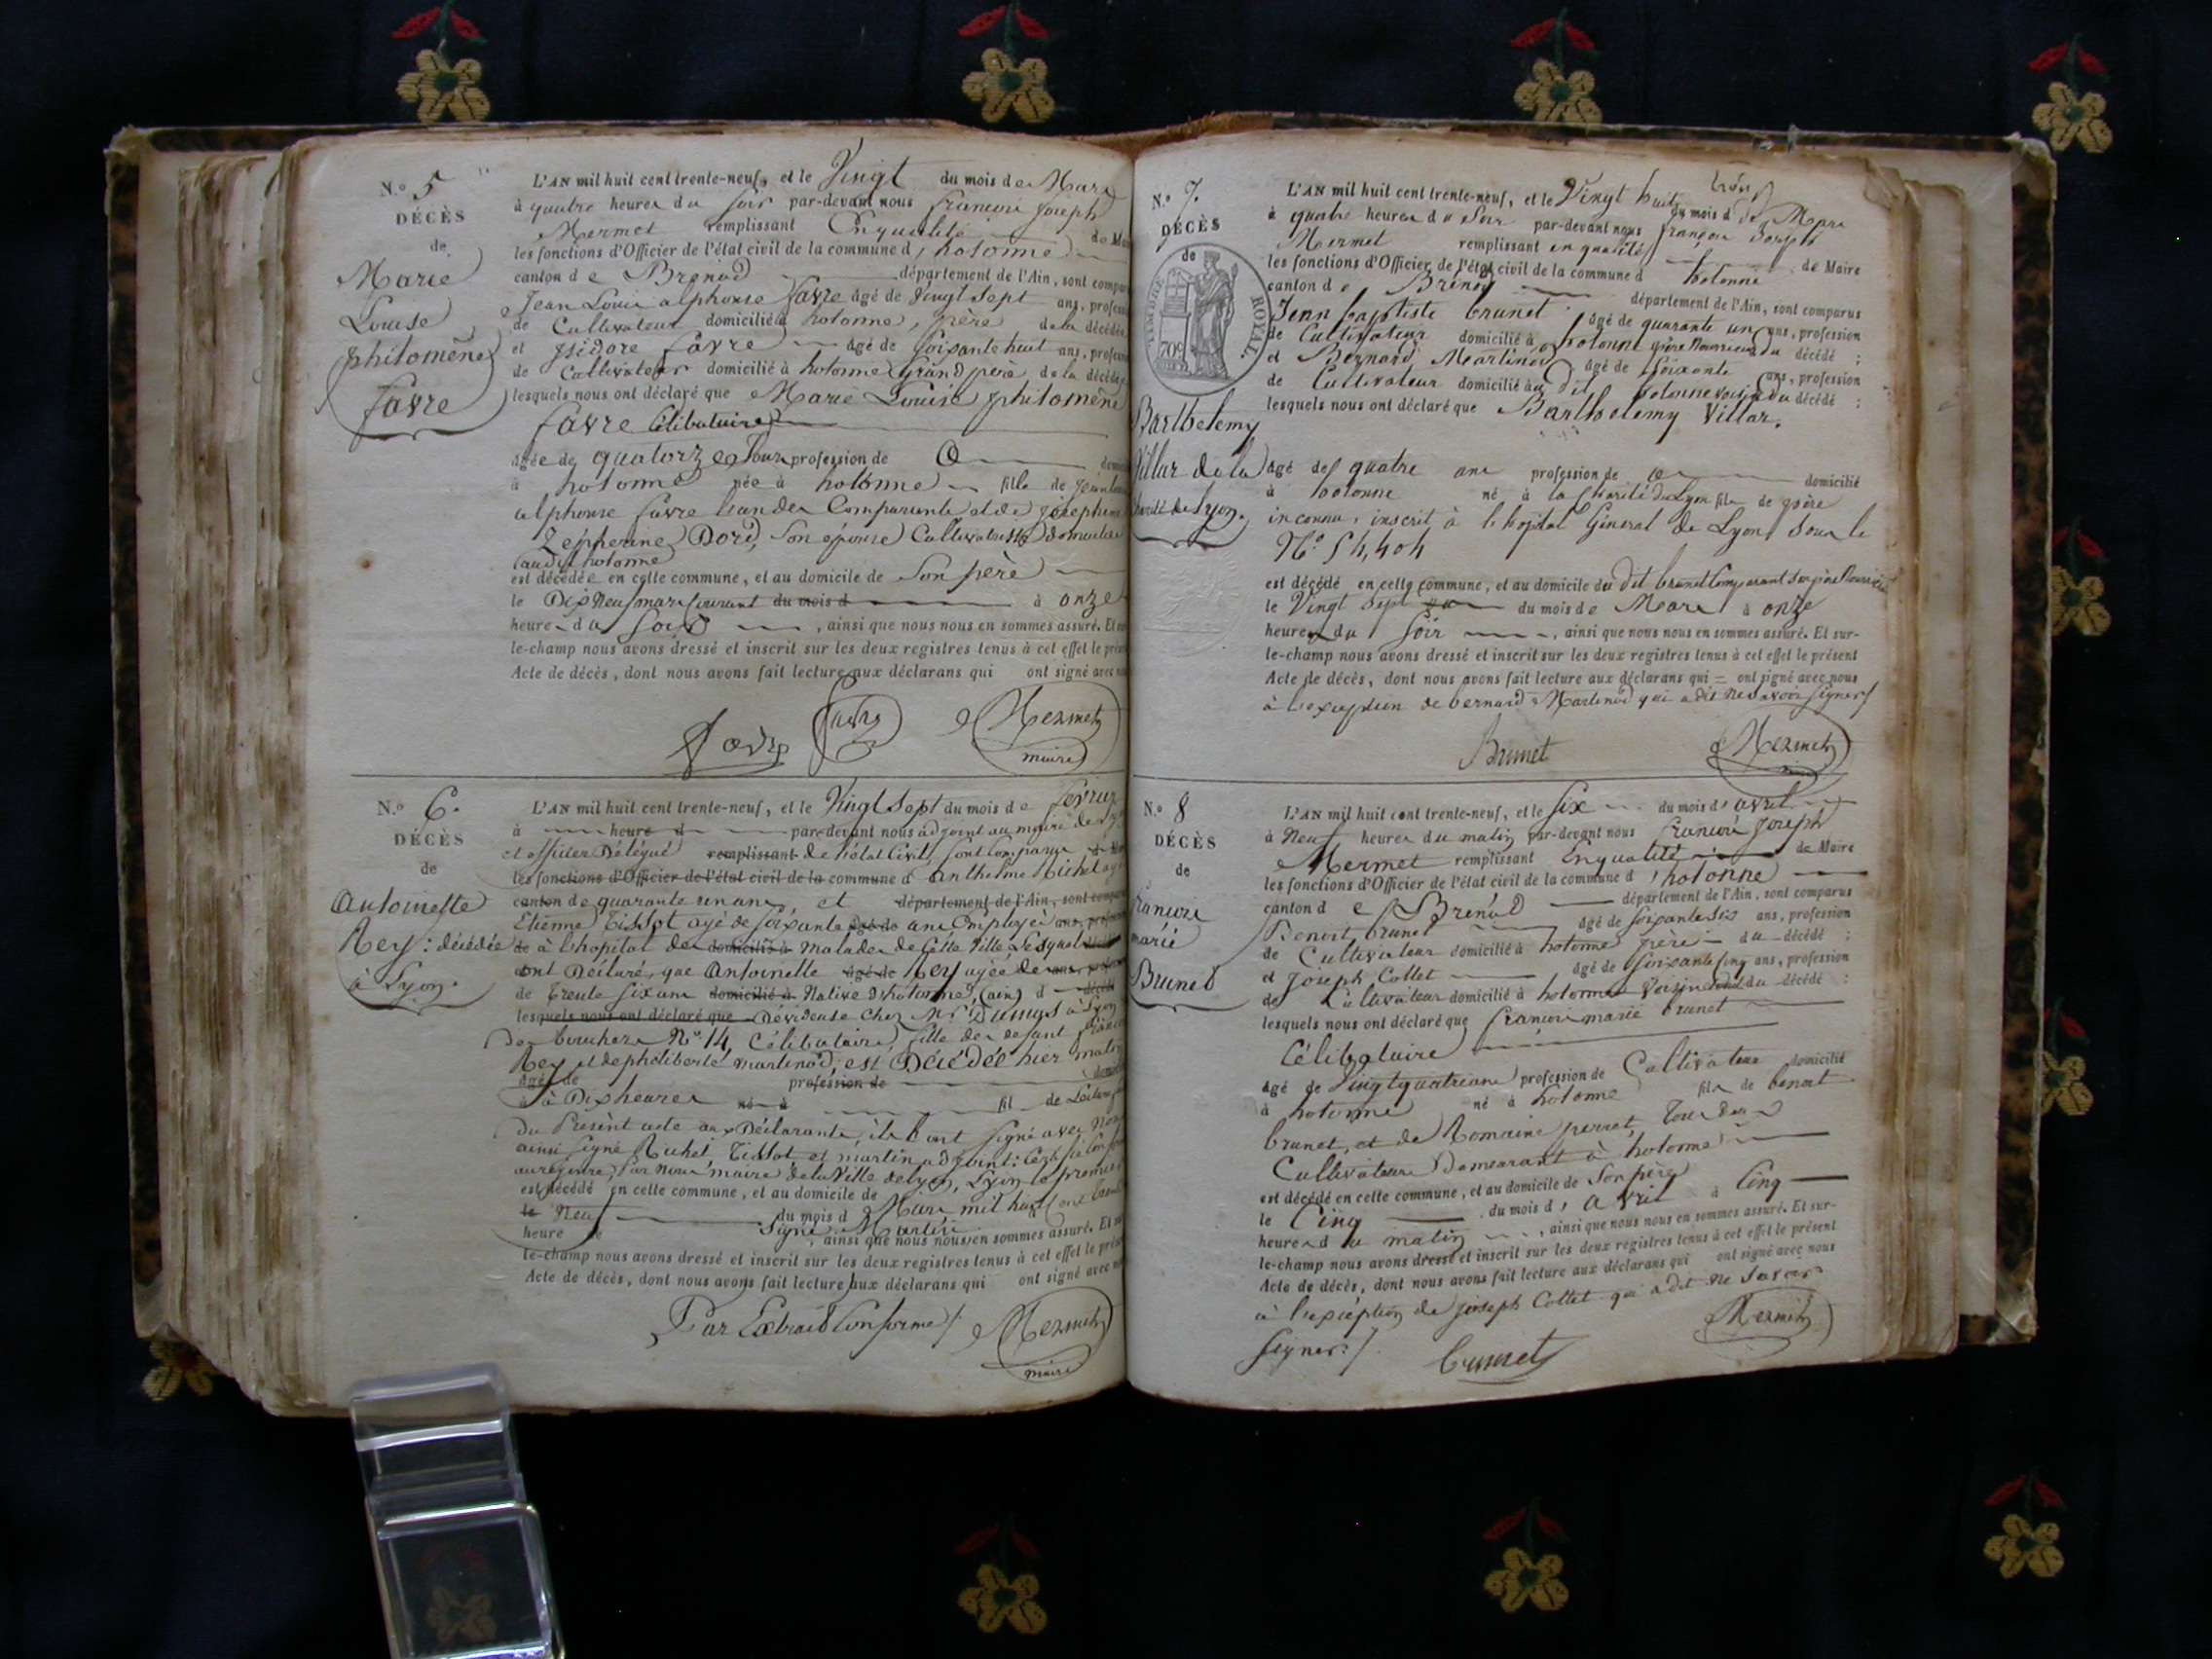 N.o 5
DÉCÈS
de
Marie
Louise
philomène
favre
L'AN mil huit cent trente-neuf, et le Vingt du mois de Mars
à quatre heures du soir par-devant nous francois joseph
Mermet remplissant Enqualité de
les fonctions d'Officier de l'état civil de la commune d'hotonne
canton de Brenod département de l'Ain, sont
Jean Louis alphonse favre âgé de Vingt sept ans,
de Cultivateur domicilié à hotonne, père de la décédée
et isidore favre âgé de soixante huit ans,
de Cultivateur domicilié à hotonne grand père de la
lesquels nous ont déclaré que Marie Louise philomène
favre Célibataire
âgée de quatorze Jours profession de
à hotonne née à hotonne fille de
alphonse favre l'un des Comparants et de josephine
Zepherine Doré, son épouse Cultivatrice
audit hotonne
est décédée en cette commune, et au domicile de Son père
le Dix Neuf mars Courant du mois d à onze
heures du Soir , ainsi que nous nous en sommes assuré. Et
le-champ nous avons dressé et inscrit sur les deux registres tenus à cet effet le
Acte de décès, dont nous avons fait lecture aux déclarans qui ont signé avec
favre
Mermet
maire
N.o 6.
DÉCÈS
de
Antoinette
Rey: décédée
à Lyon.
L'AN mil huit cent trente-neuf, et le Vingt Sept du mois de
à heure d par-devant nous adjoint au maire de
et officier Délégué remplissant de l'état Civil, sont Comparus
les fonctions d'Officier de l'état civil de la commune d anthelme
canton de quarante un ans, et département de l'Ain, sont
Etienne Tissot agé de soixante âgé de ans Employés ans,
de à l'hopital des domicilié à malades de Cette Ville Lesquels
ont Déclaré, que Antoinette âgé de Rey agée de ans,
de trente six ans domicilié à Native d'hotonne, (ain) d
lesquels nous ont déclaré que Dévideuse chez Mr à
des bouchers No 14, Célibataire, fille des defunt
Rey et de philiberte martinod, est Décédée hier matin
âgé de profession de
à à Dix heures né à fil de
Du Présent acte aux Déclarants, ils ont signé avec Nous
ainsi signé Tissot et martin adjoint:
au registre, par nous maire de la Ville de Lyon, Lyon le premier
est décédé en cette commune, et au domicile de
le du mois d Mars mil huit Cent
heure Signé Martin , ainsi que nous nous en sommes assuré. Et
le-champ nous avons dressé et inscrit sur les deux registres tenus à cet effet le
Acte de décès, dont nous avons fait lecture aux déclarans qui ont signé avec
Par Extrait Conforme /. Mermet
maire
N.o 7.
DÉCÈS
de
TIMBRE ROYAL.
70c
Barthelemy
Villar de la
de Lyon.
L'AN mil huit cent trente-neuf, et le Vingt huit du mois de Mars
à quatre heures du Soir par-devant nous françois Joseph
Mermet remplissant en qualité de Maire
les fonctions d'Officier de l'état civil de la commune d hotonne
canton de Brénod département de l'Ain, sont comparus
Jean baptiste brunet âgé de quarante un ans, profession
de Cultivateur domicilié à hotonne père Nourricier du décédé ;
et Bernard Martinod âgé de soixante ans, profession
de Cultivateur domicilié au dit hotonne voisin du décédé ;
lesquels nous ont déclaré que Barthelemy Villar.
âgé de quatre ans profession de domicilié
à hotonne né à la Charité de Lyon fils de père
inconnu, inscrit à l'hopital Général de Lyon sous le
No 54,404
est décédé en cette commune, et au domicile du dit brunet Comparant Son père Nourricier
le Vingt Sept du mois de Mars à onze
heures du soir , ainsi que nous nous en sommes assuré. Et sur-
le-champ nous avons dressé et inscrit sur les deux registres tenus à cet effet le présent
Acte de décès, dont nous avons fait lecture aux déclarans qui ont signé avec nous
à l'exception de bernard Martinod qui a dit ne savoir signer /
Brunet Mermet
N.o 8
DÉCÈS
de
francois
marie
Brunet
L'AN mil huit cent trente-neuf, et le Six du mois d'avril
à Neuf heures du matin par-devant nous francois Joseph
Mermet remplissant Enqualité de Maire
les fonctions d'Officier de l'état civil de la commune d'hotonne
canton de Brénod département de l'Ain, sont comparus
Benoit brunet âgé de soixante six ans, profession
de Cultivateur domicilié à hotonne père du décédé ;
et Joseph Collet âgé de soixante Cinq ans, profession
de Cultivateur domicilié à hotonne Voisin du décédé :
lesquels nous ont déclaré que francois marie brunet
Célibataire
âgé de Vingt quatre ans profession de Cultivateur domicilié
à hotonne né à hotonne fils de benoit
brunet, et de Romaine perret, Tous deux
Cultivateurs Demeurant à hotonne
est décédé en cette commune, et au domicile de Son père
le Cinq du mois d'avril à Cinq
heures du matin , ainsi que nous nous en sommes assuré. Et sur-
le-champ nous avons dressé et inscrit sur les deux registres tenus à cet effet le présent
Acte de décès, dont nous avons fait lecture aux déclarans qui ont signé avec nous
à l'exception de joseph Collet qui a dit ne Savoir
Signer. /. brunet Mermet